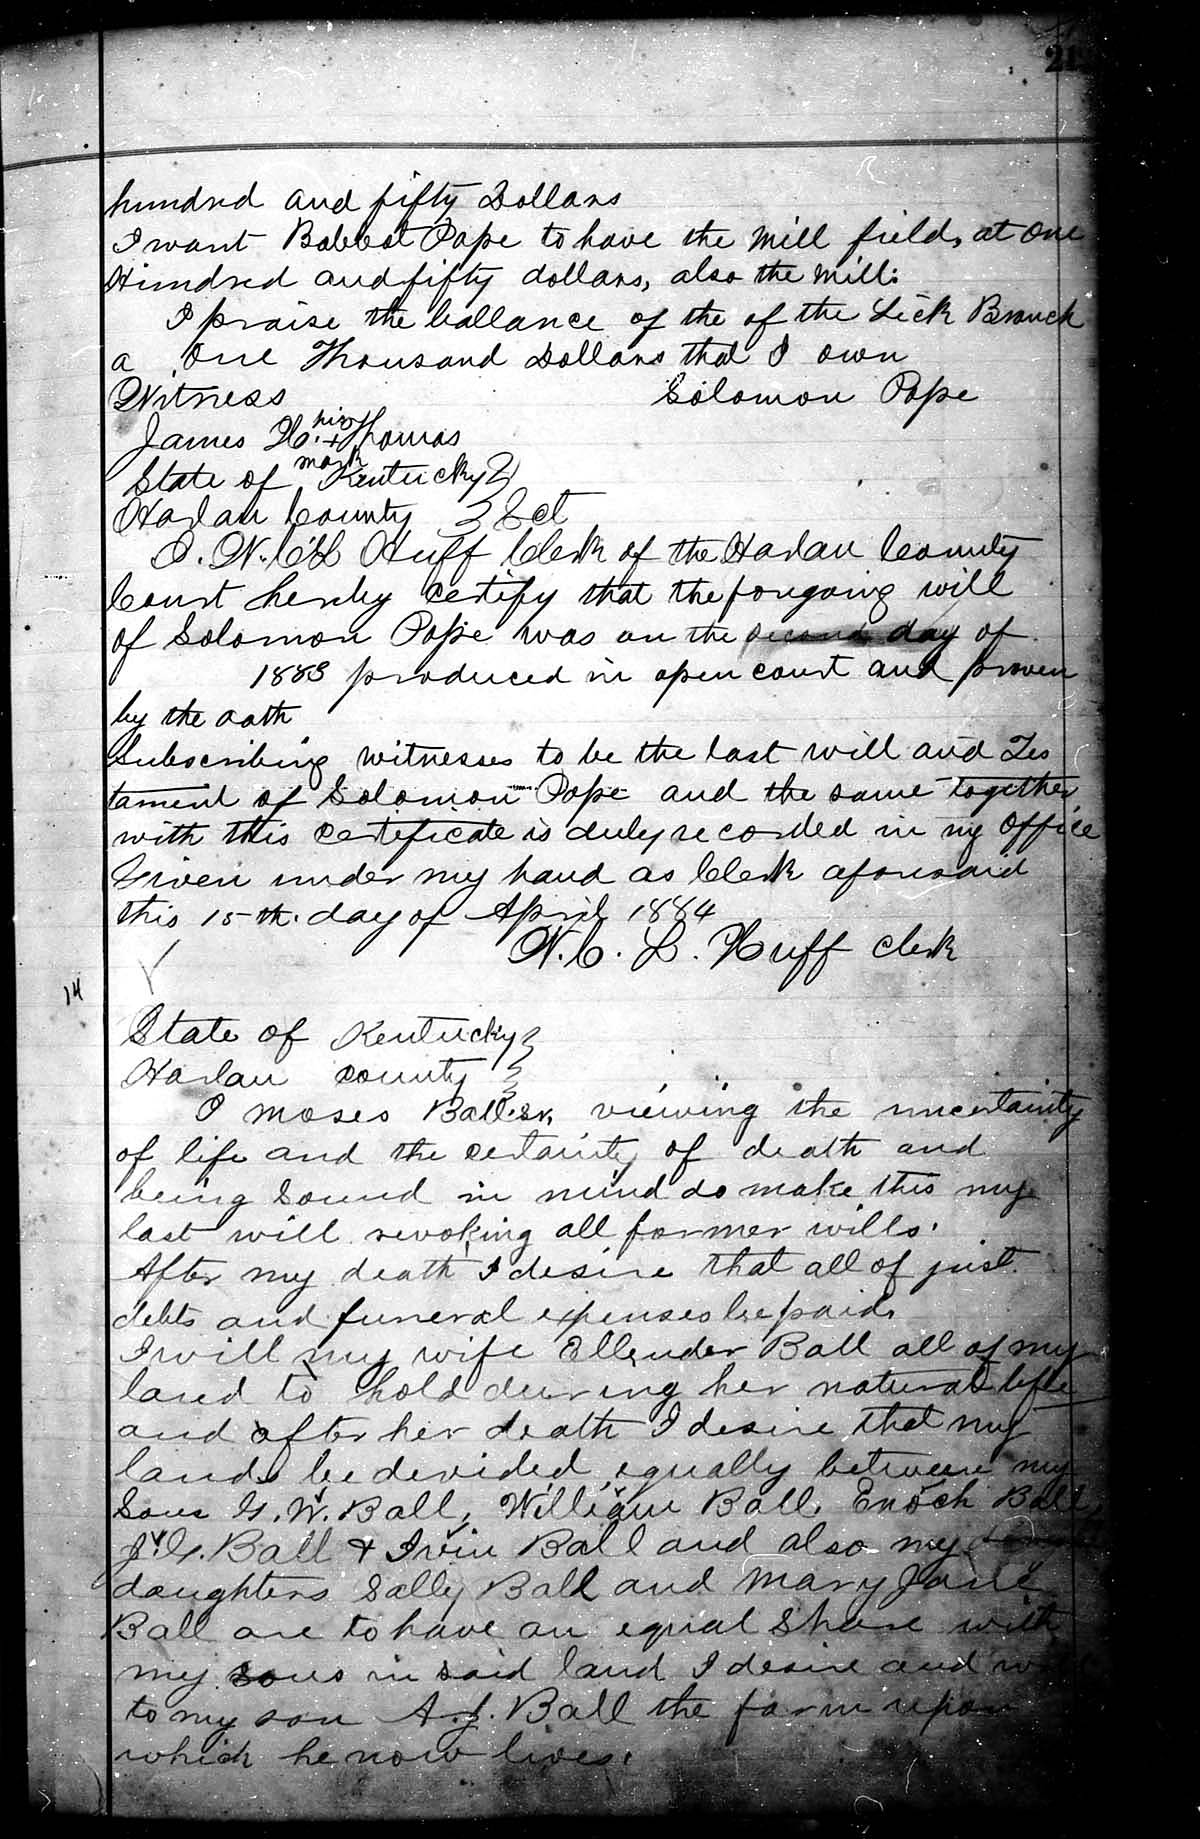 21
hundred and fifty Dollars
I want Bobbest Pope to have the Mill field, at One
Hundred and fifty dollars, also the Mill.
I praise the ballance of the of the Lick Branch
a One Thousand Dollars that I own
Witness Solomon Pope
James H. his + mark Thomas
State of Kentucky }
Harlan County } Sct
I. N. C. L Huff Clerk of the Harlan County
Court hereby certify that the foregoing will
of Solomon Pope was on the second day of
1883 produced in open court and proven
by the oath
Subscribing witnesses to be the last will and Tes
tament of Solomon Pope and the same together
with this certificate is duly recorded in my Office
Given under my hand as Clerk aforesaid
this 15th. day of April 1884
N. C. L. Huff Clerk
14
State of Kentucky }
Harlan County }
I Moses Ball.Sr, viewing the uncertainty
of life and the certainty of death and
being Sound in mind do make this my
last will revoking all former wills.
After my death I desire that all of just
debts and funeral expenses be paid.
I will my wife Ellender Ball all of my
land to hold dureing her natural life
and after her death I desire that my
lands be devided equally between my
Sons G. W. Ball, William Ball, Enoch Ball,
J. G. Ball & Irvin Ball and also my
daughters Sally Ball and Mary Jane
Ball are to have an equal Share with
my sons in said land I desire and
to my son A. J. Ball the farm upon
which he now lives.